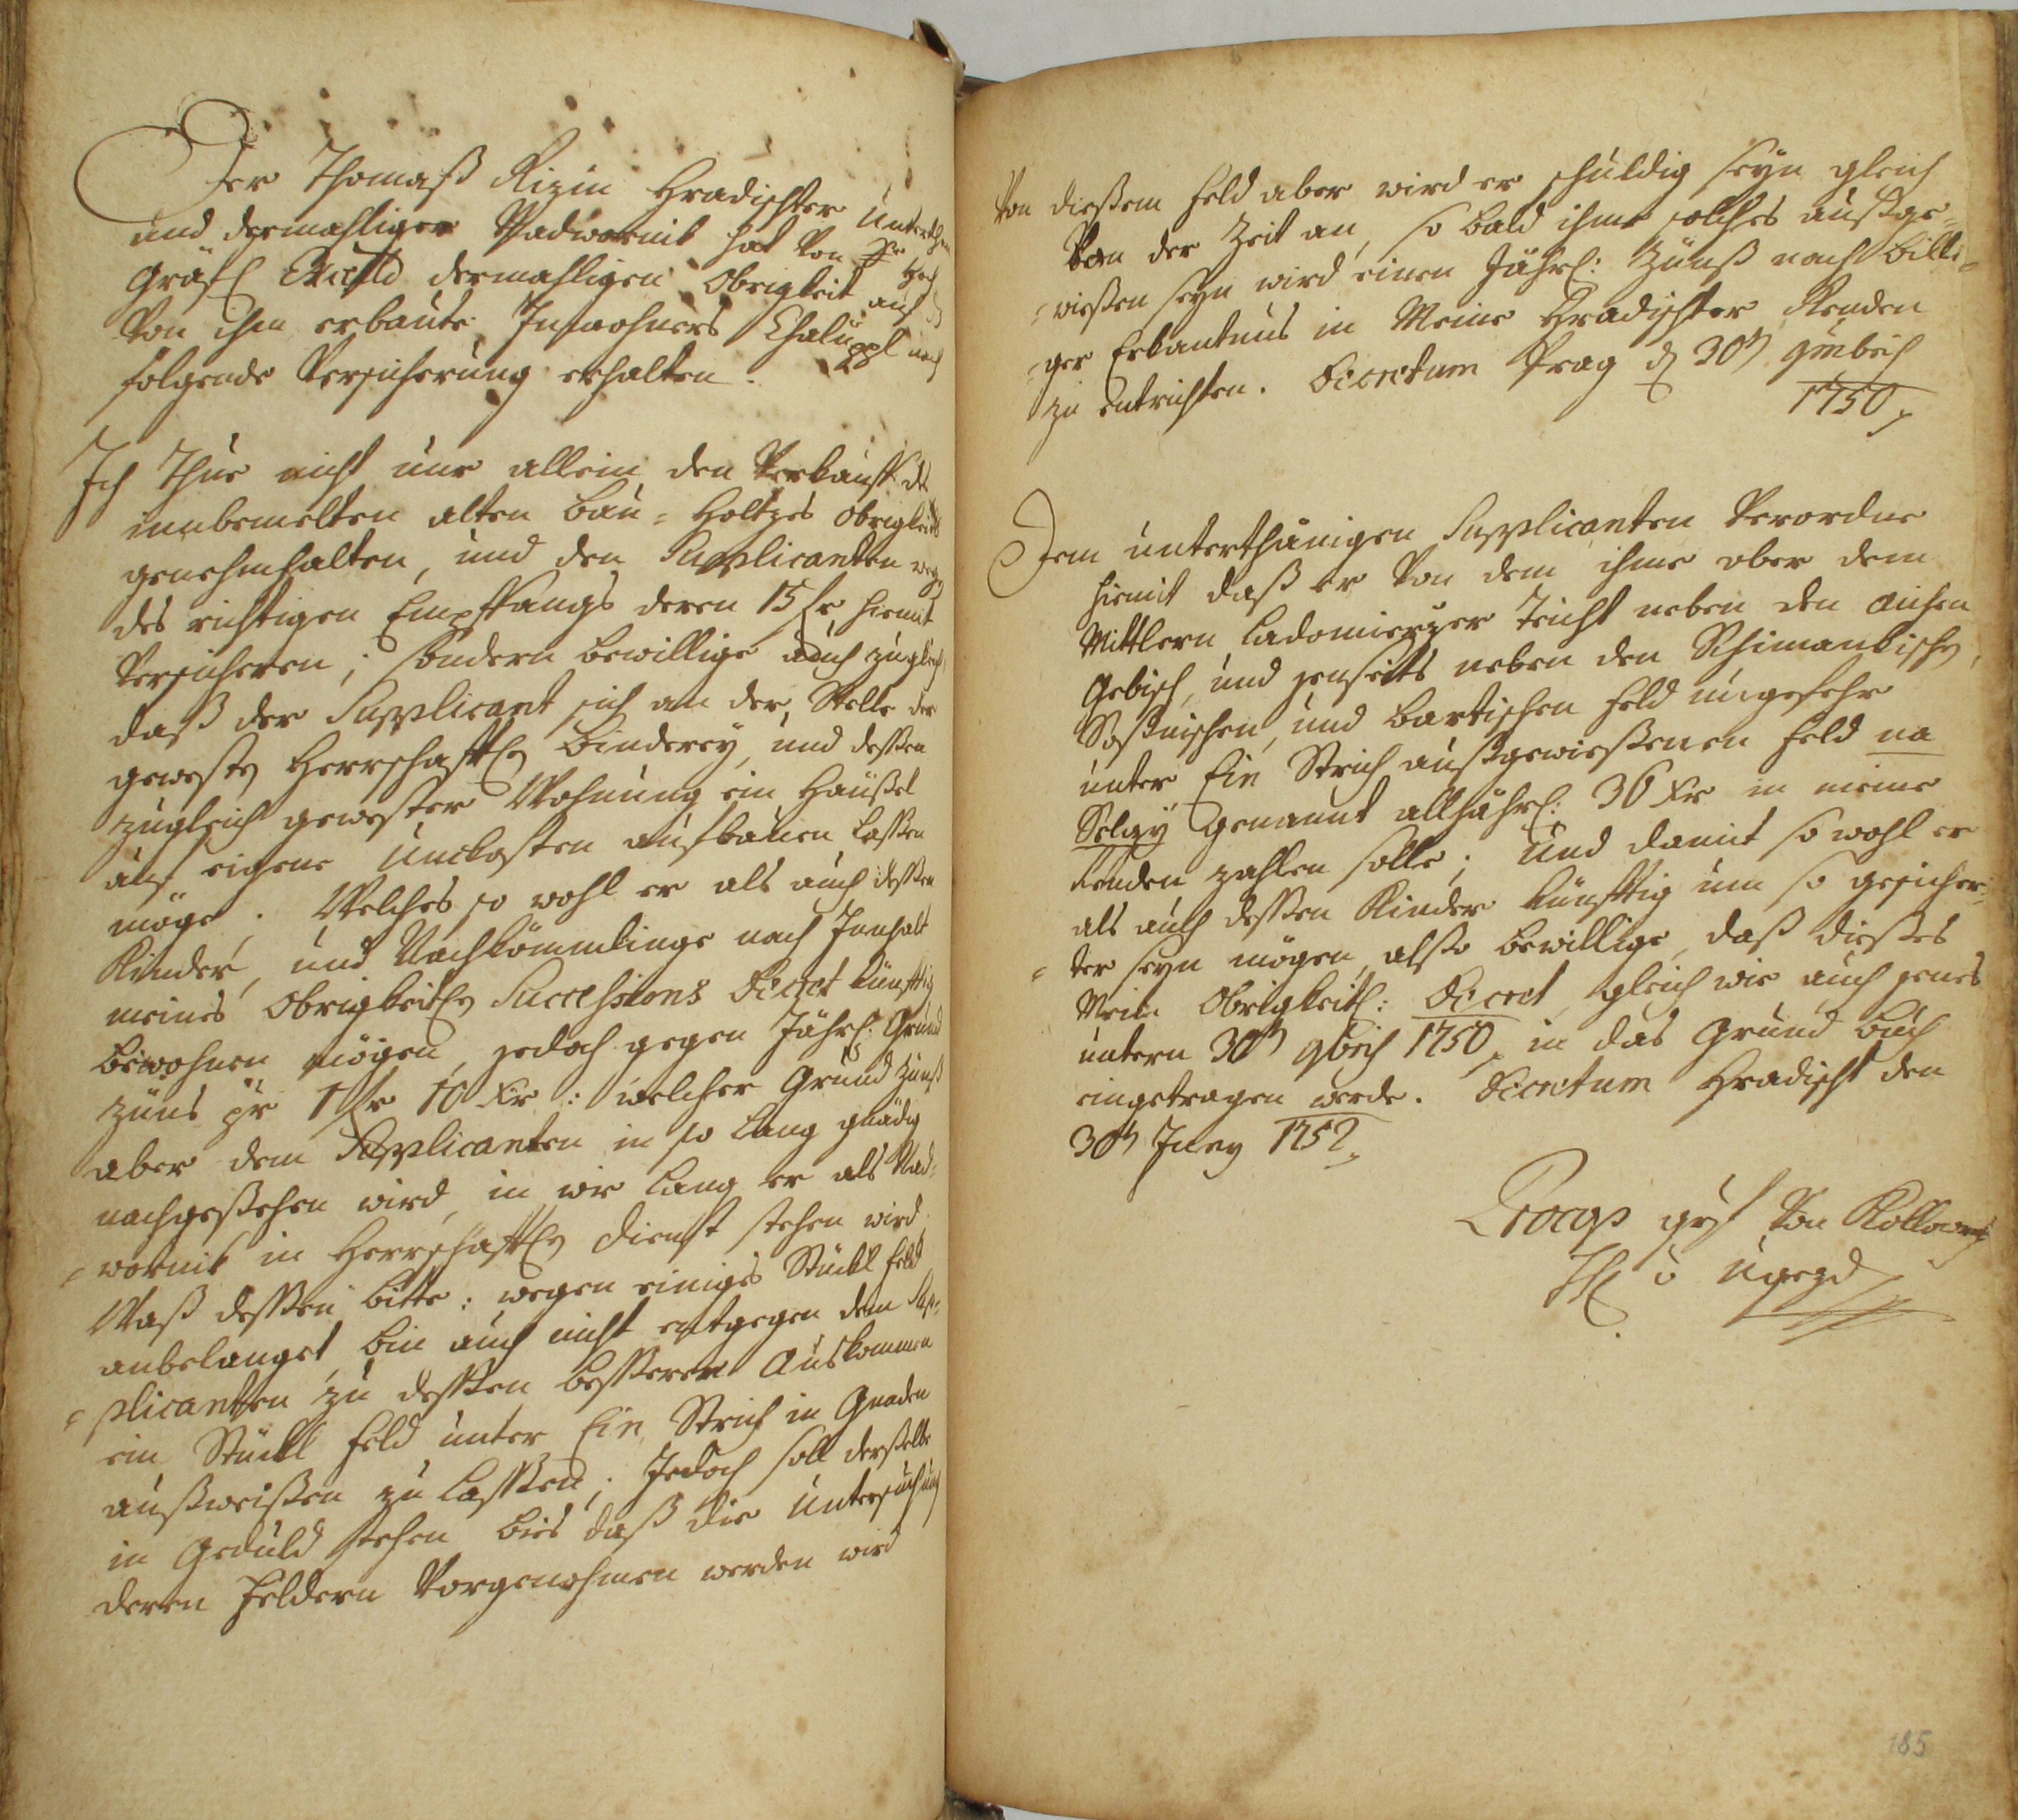 Der Thomaß Rizin Hradischter Unterthan
und dermahliger Padwornik hat von Sr Hoch
Gräfl Excell dermahligen Obrigkeit auf
Von ihm erbaute Innwohners Chaluppl nach
folgende Versicherung erhalten.
Ich Thue nicht nur allein den Verkauff des
innbemelten alten Bau=Holtzes obrigkeitl
genehmhalten, und den Supplicanten wegen
des richtigen Empffangs deren 15 fr hiemit
Versicheren; sondern bewillige auch zugleich,
daß der Supplicant sich an der Stelle der
gewesten Herrschafftlen Binderey, und dessen
zugleich gewester Wohnung ein Häußel
auf eigene Uncosten aufbauen lassen
möge. Welches so wohl er als auch dessen
Kinder, und Nachkömmlinge nach Innhalt
meines Obrigkeitlen Successions Decret künfftig
bewohnen mögen, jedoch gegen Jährl: Grund
züns pr 1 fr 10 Xr: welcher Grund Zünß
aber dem Supplicanten in so lang gnädig
nachgesehen wird, in wie lang er als Pad=
=wornik in Herrschafftlen Dienst stehen wird.
Waß dessen bitte: wegen einiges Stückl feld
anbelanget, bin auch nicht entgegen dem Sup=
=plicanten zu dessen besseren Auskommen
ein Stückl feld unter Ein Strich in Gnaden
außweisen zu lassen; Jedoch soll derselbe
in Geduld stehen bies daß die Untersuchung
deren Feldern Vorgenohmen werden wird
Von dießem feld aber wird er schuldig seyn gleich
Von der Zeit an, so bald ihme solches außge=
=wießen seyn wird einen Jährl: Zünß nach billi=
=ger Erkantnus in Meine Hradischter Renden
zu entrichten. Decretum Prag d 30t 9mbris
1750
Dem unterthänigen Supplicanten Verordne
hiemit daß er Von dem ihme ober dem
Mittlern Ladomierzer Teicht neben den
Gebisch, und jenseits neben den Schimankischen,
und Bartischen feld ungefehr
unter Ein Strich außgewießenen feld na
Selgy genannt alljährl: 36 Xr in meine
Renden zahlen solle; Und damit so wohl er
als auch dessen Kinder künfftig um so gesicher=
=ter seyn mögen, alßo bewillige, daß dießes
Mein Obrigkeitl: Decret, gleich wie auch jenes
untern 30t 9bris 1750, in das Grund Buch
eingetragen werde. Decretum Hradischt den
30t Juny 1752
Procop grf Von Kollowrat
u Ugezd
185